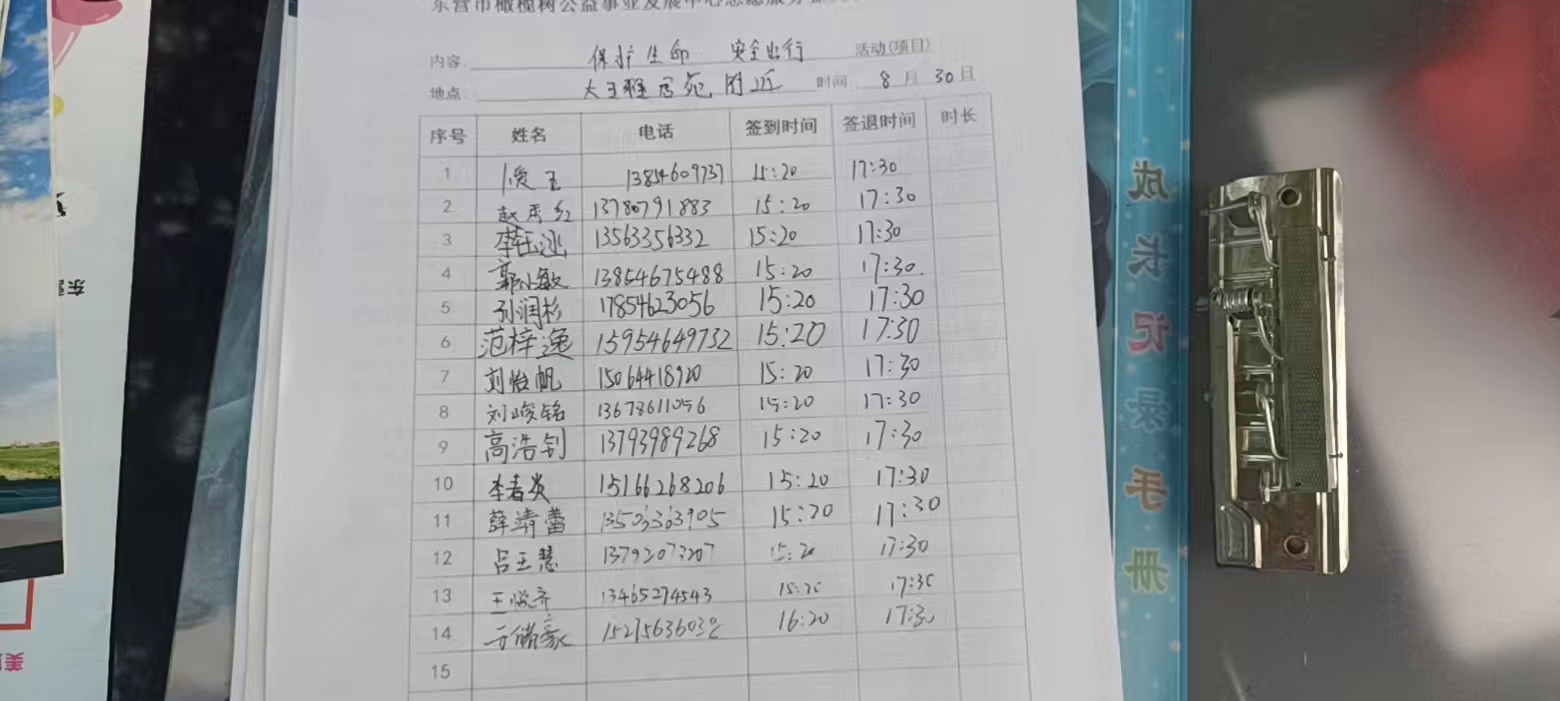 东营市橄榄树公益事业发展中心志愿服务
内容 保护生命 安全出行 活动(项目)
地点: 大王雅居苑附近 时间 8 月 30 日
序号 姓名 电话 签到时间 签退时间 时长
1 13854609737 15:20 17:30
2 赵秀红 13780791883 15:20 17:30
3 李玉冰 13563356332 15:20 17:30
4 郭小敏 13854675488 15:20 17:30.
5 孙润杉 17854623056 15:20 17:30
6 范梓逸 15954649732 15:20 17:30
7 刘怡帆 15064418920 15:20 17:30
8 刘峻铭 13678611056 15:20 17:30
9 高浩钊 13793989268 15:20 17:30
10 李春炎 15166268206 15:20 17:30
11 薛靖蕾 13505363905 15:20 17:30
12 吕玉慧 13792073207 15:20 17:30
13 王悦齐 13465274543 15:20 17:30
14 15275636032 16:20 17:30
15
成长记录手册
东
美